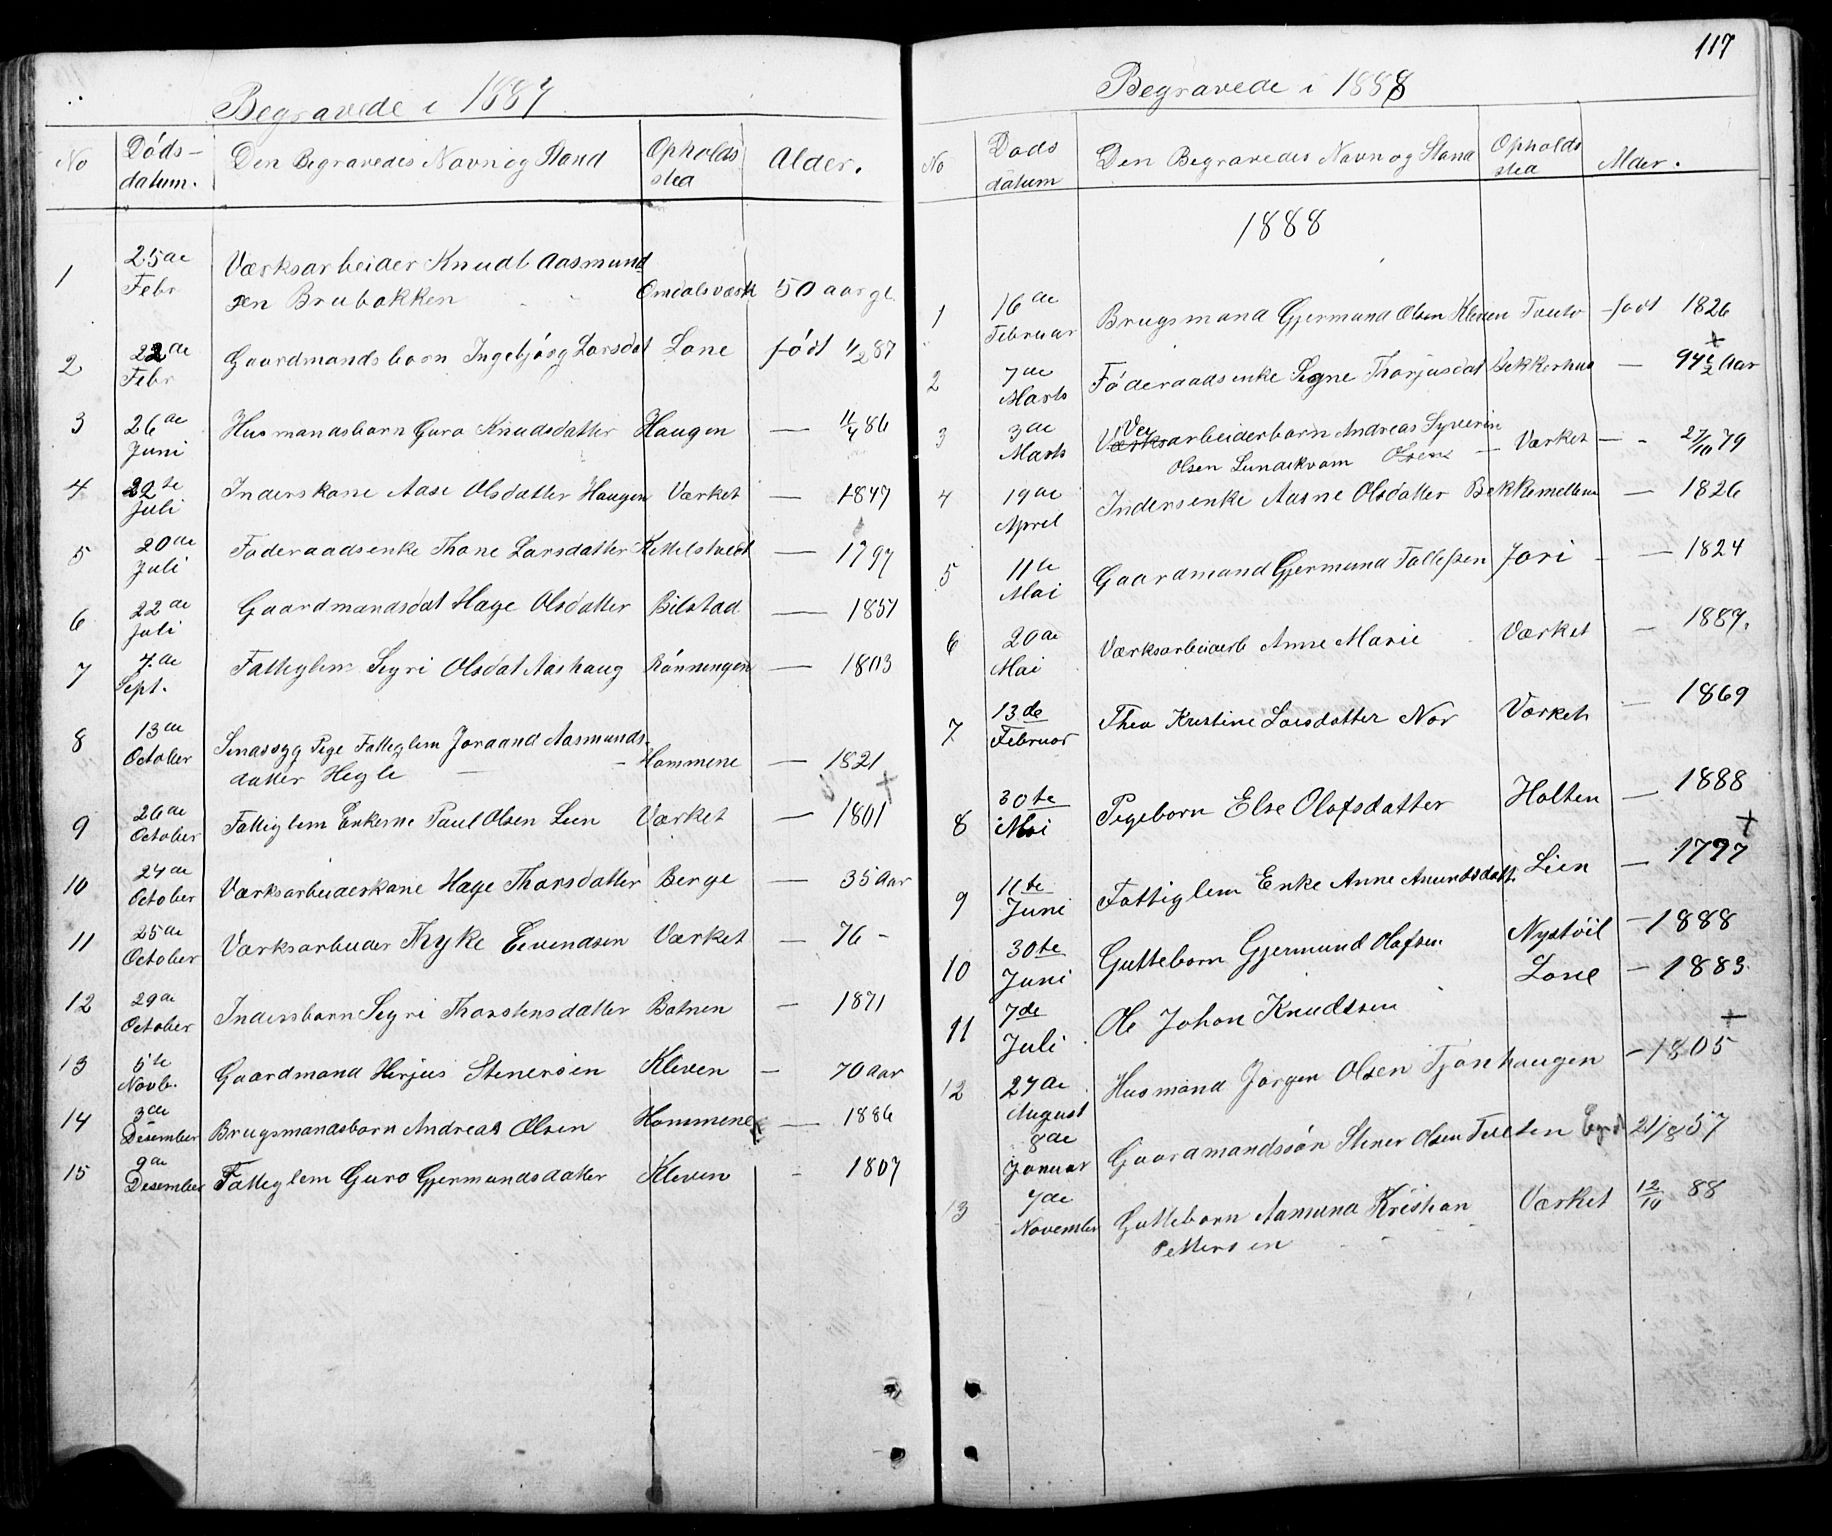 Begravede i 1887
No Døds- datum. Den Begravedes Navn og Stand Opholds sted Alder.
1 25de Febr Værksarbeider Knudt Aasmund
sen Brubakken Omdalsværk 50 aar gl.
2 22de Febr Gaardmandsbarn Ingebjørg Larsdat Lone født 11/2 87
3 26de Juni Husmandsbarn Guro Knudsdatter Haugen — 11/4 86
4 22te Juli Inderskone Aase Olsdatter Haugen Værket — 1847
5 20de Juli Føderaadsenke Thone Larsdatter Kettelstvedt — 1797
6 22de Juli Gaardmandsdat Hage Olsdatter Bilstad — 1851
7 7de Sept. Fattiglem Segri Olsdat Aashaug Rønningen — 1803
8 13de October Sindssyg Pige Fattiglem Joraand Aasmunds-
datter Hegle — Hommene — 1821
9 26de October Fattiglem Enkeme Paul Olsen Lien Værket — 1801
10 24de October Værksarbeiderskone Hage Thorsdatter Berge — 35 Aar
11 25de October Værksarbeider Thyke Eivendsen Værket — 76 -
12 29de October Indersbarn Segri Thorstensdatter Botnen — 1871
13 5te Novb. Gaardmand Herjus Stenersen Kleven — 70 Aar
14 3de Desember Brugsmandsbarn Andreas Olsen Hommene — 1886
15 9de Desember Fattiglem Guro Gjermundsdatter Kleven - 1807
117
Begravede i 1888
No Døds datum Den Begravedes Navn og Stand Opholds sted Alder.
1888
1 16de Februar Brugsmand Gjermund Olsen Kleven Tveito født 1826
2 7de Marts Føderaadsenke Segne Thorjusdat Bekkerhus — 94 1/2 Aar +
3 3de Marts Ver Værksarbeiderbarn Andreas Syverin
Olsen Lundekvam Olsen — Værket — - 27/10 79
4 19de April Indersenke Aasne Olsdatter Bekkemellem — 1826
5 11te Mai Gaardmand Gjermund Tallefsen Jori - — 1824
6 20de Mai Værksarbeiderb Anne Marie Værket — 1887.
7 13de Februar Thea Kristine Larsdatter Nor Værket — 1869
8 30te Mai Pigebarn Else Olafsdatter Holten — 1888
9 11te Juni Fattiglem Enke Anne Amundsdatt. Lien — 1797 +
10 30te Juni Guttebarn Gjermund Olafsen Nystøil — 1888
11 7de Juli Ole Johan Knudtsen Lone — 1883.
12 27de August Husmand Jørgen Olsen Tjønhaugen — 1805 +
8de Januar Gaardmandssøn Stener Olsen Tveiten 21/8 57
13 7de November Gutteborn Aamund Kristian Værket 12/10 88
Pettersen